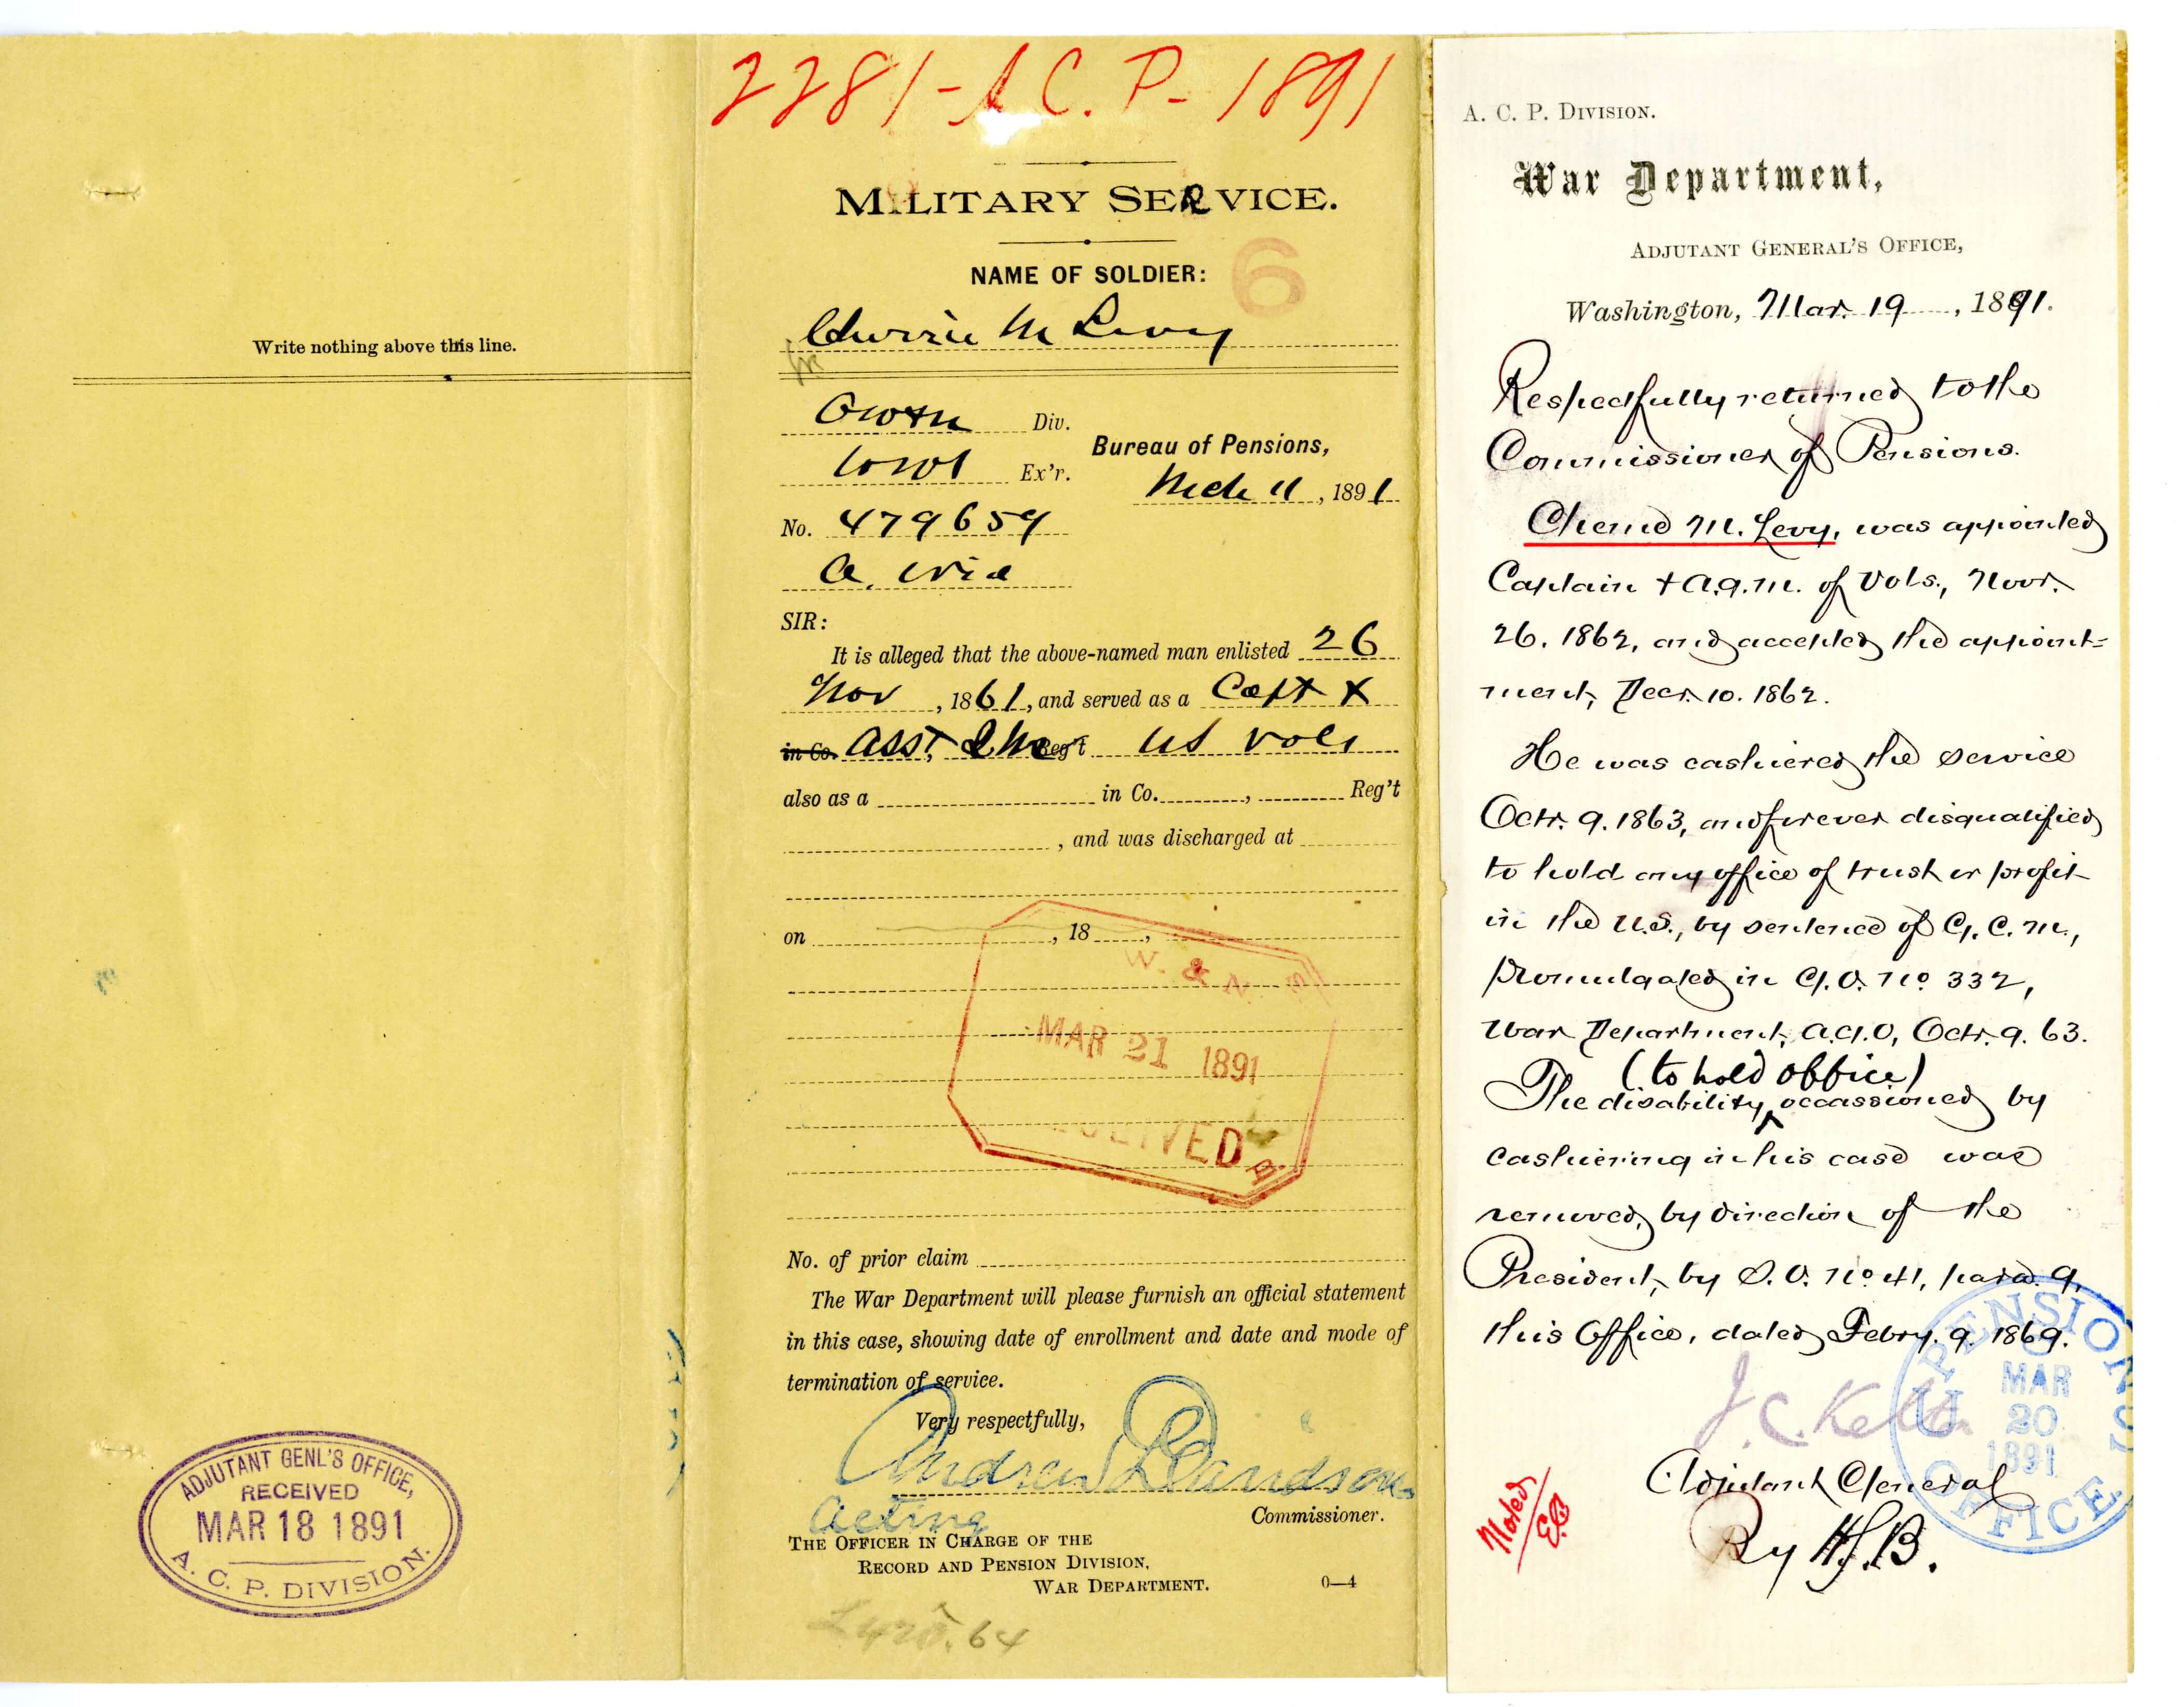 Write nothing above this line.
ADJUTANT GENL'S OFFICE,
RECEIVED
MAR 18 1891
A. C. P. DIVISION.
2281-A.C.P-1891
MILITARY SERVICE.
6
NAME OF SOLDIER:
M Levy
Div.
Bureau of Pensions,
Ex'r.
Mch 11, 1891
No. 479659
SIR:
It is alleged that the above-named man enlisted 26
Nov, 1861, and served as a Capt &
in Co. Asst, Q M Reg't US Vols
also as a in Co. , Reg't
, and was discharged at
on , 18 ,
W. & N.
MAR 21 1891
No. of prior claim
The War Department will please furnish an official statement
in this case, showing date of enrollment and date and mode of
termination of service.
Very respectfully,
Andrew Davidson
Acting Commissioner.
THE OFFICER IN CHARGE OF THE
RECORD AND PENSION DIVISION,
WAR DEPARTMENT.
0—4
A. C. P. DIVISION.
War Department,
ADJUTANT GENERAL'S OFFICE,
Washington, Mar. 19, 1891.
Respectfully returned to the
Commissioner of Pensions.
Cherrie M. Levy, was appointed
Captain & A.Q.M. of Vols., Novr.
26. 1862, and accepted the appoint-
ment, Decr. 10. 1862.
He was cashiered the service
Octr. 9. 1863, and forever disqualified
to hold any office of trust or profit
in the U.S., by sentence of G. C. M.,
promulgated in G.O. No 332,
War Department, A.G.O, Octr. 9. 63.
(to hold office)
The disability occassioned by
cashiering in his case was
removed, by direction of the
President, by S.O. No 41, para. 9,
this Office, dated Febry. 9. 1869.
J.C. Kelton
Adjutant General
By H.J.B.
Noted
E.B
U S PENSION OFFICE
MAR
20
1891